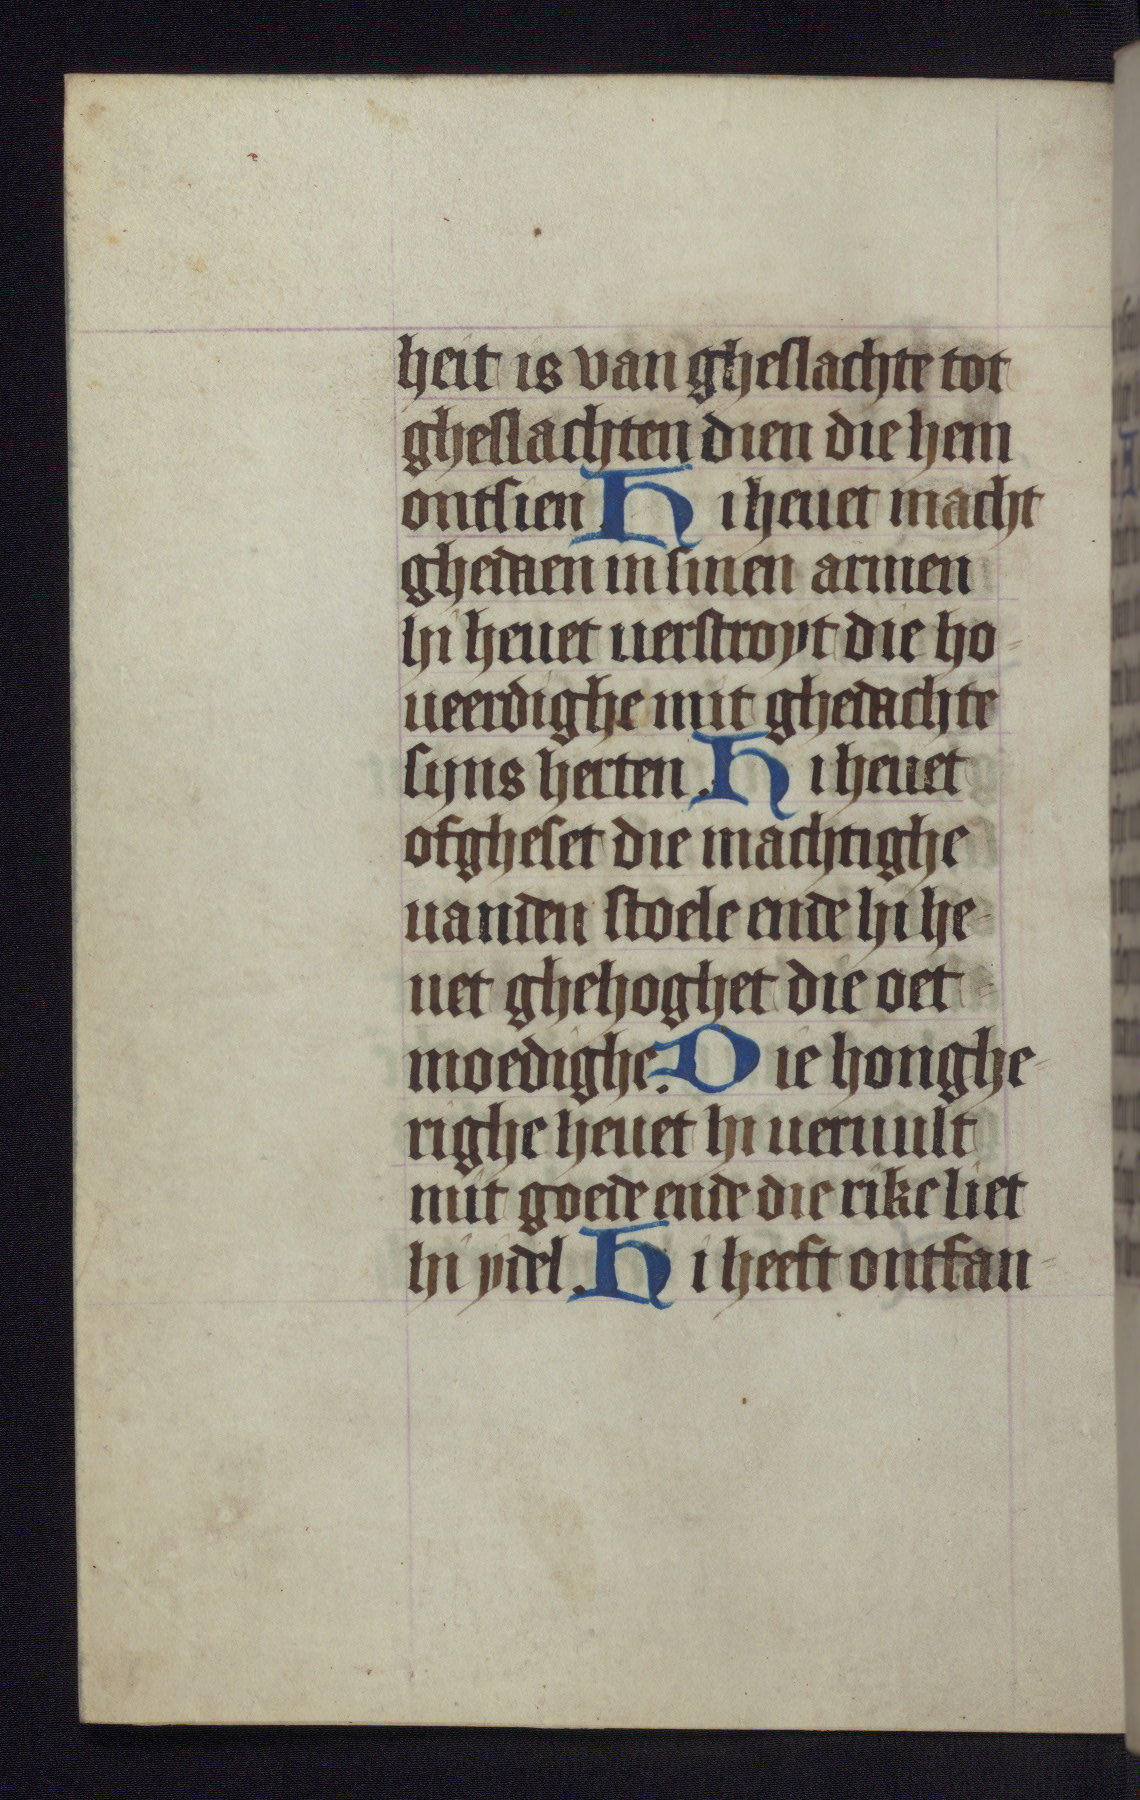 heit is van gheslachte tot
gheslachten dien die hem
ontsien Hi heuet macht
ghedaen in sinen armen
hi heuet uerstroyt die ho-
ueerdighe mit ghedachte
sijns herten. Hi heuet
ofgheset die machtighe
uanden stoele ende hi he-
uet ghehoghet die oet-
moedighe. Die honghe-
righe heuet hi ueruult
mit goede ende die rike liet
hi ydel. Hi heeft ontfan-